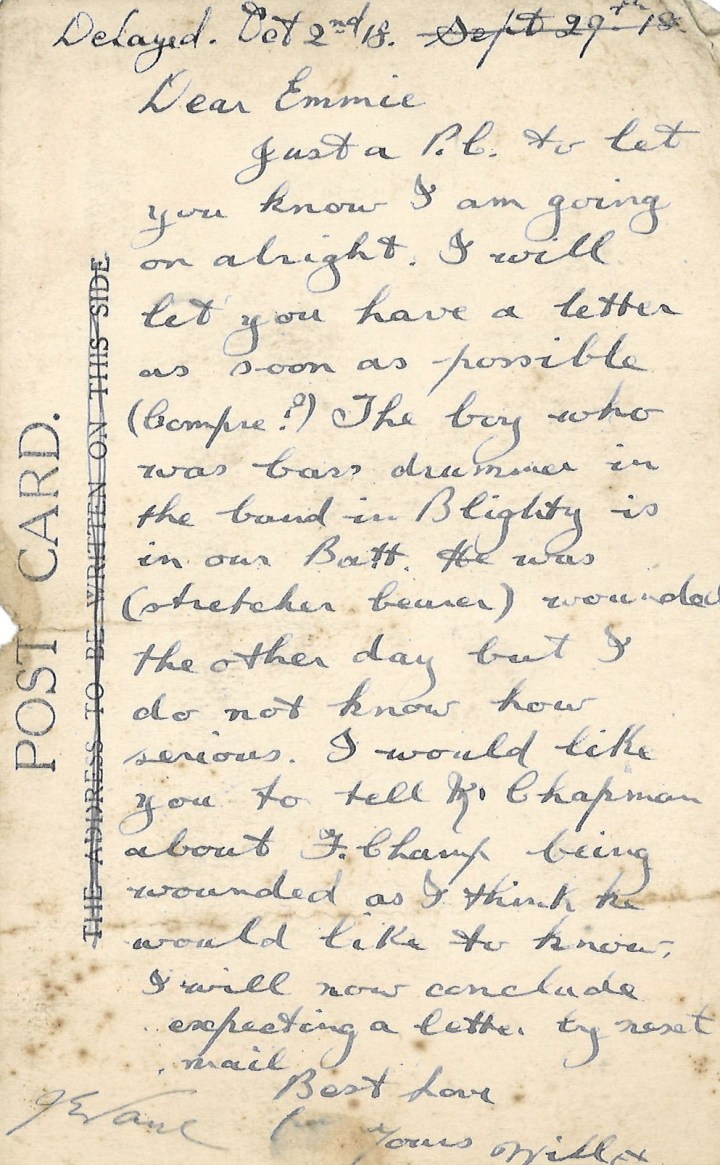 Delayed. Oct 2nd 18. Sept 29th 18.
Dear Emmie
Just a P.C. to let
you know I am going
on alright. I will
let you have a letter
as soon as possible
(Compre!?) The boy who
was bass drummer in
the band in Blighty is
in our Batt. He was
(stretcher bearer) wounded
the other day but I
do not know how
serious. I would like
you to tell Mr Chapman
about F. Champ being
wounded as I think he
would like to know.
I will now conclude
expecting a letter by next
mail
Best Love
Yours Will x
POST CARD.
THE ADDRESS TO BE WRITTEN ON THIS SIDE